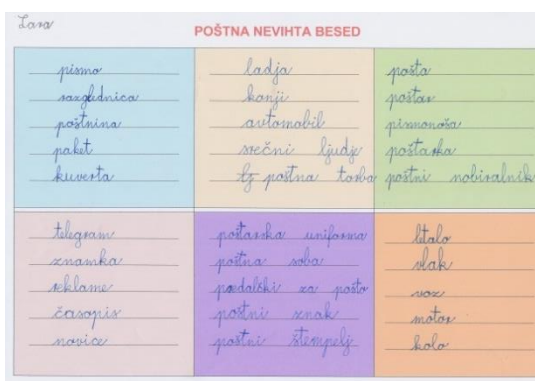 Lara
POŠTNA NEVIHTA BESED
pismo
razglednica
poštnina
paket
kuverta
ladja
konji
avtomobil
srečni ljudje
poštna torba
pošta
poštar
pismonoša
poštarka
poštni nabiralnik
telegram
znamka
reklame
časopis
novice
poštarska uniforma
poštna soba
predalčki za pošto
poštni znak
poštni štempelj
letalo
vlak
voz
motor
kolo